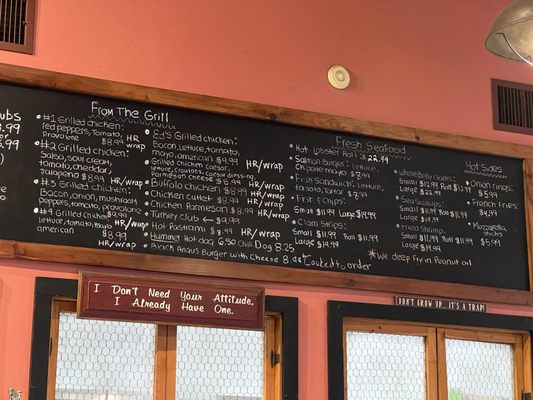 From The Grill
#1 Grilled chicken:
red peppers, Tomato, HR
Provalone $8.99 wrap
#2 Grilled chicken:
Salsa, sour cream,
tomato, cheddar,
Jalapeno $8.99 HR/wrap
#3 Grilled Chicken:
Bacon, onion, mushroom
peppers, tomato, provalone
$8.99 HR/wrap
#4 Grilled chicken
lettuce, tomato, mayo
american $8.99
HR/wrap
Ed's Grilled chicken:
Bacon, lettuce, tomato,
mayo, american $9.99 HR/wrap
Grilled chicken caesar
lettuce, croutons, caesar dressing
parmesan cheese $9.99 HR/wrap
Buffalo chicken $9.99 HR/wrap
Chicken cutlet $8.99 HR/wrap
Chicken Parmesan $8.99 HR/wrap
Turkey Club $9.99
Hot Pastrami $8.99 HR/wrap
Hummel Hot dog 6.50 Chili Dog 8.25
Black Angus Burger with Cheese 8.99 Cooked to order
UBS
.99
or
5.99
Fresh Seafood
Hot Lobster Roll $22.99
Salmon Burger: lettuce,
chipotle mayo $7.99
Fish Sandwich: Lettuce,
tartar sauce $7.99
Fish & Chips
Small $11.99 Large $19.99
Clam Strips:
Small $11.99 Roll $11.99
Large $19.99
Whole Belly Clams:
Small
Large $22.99
Sea Scallops:
Small $11.99 Roll $11.99
Large $19.99
Fried Shrimp:
Small $11.99 Roll $11.99
Large $19.99
*We deep fry in Peanut oil
Hot Sides
Onion rings
$5.99
French Fries
$4.99
Mozzarella
Sticks
$5.99
I Don't Need Your Attitude,
I Already Have One.
DON'T GROW UP... IT'S A TRAP!